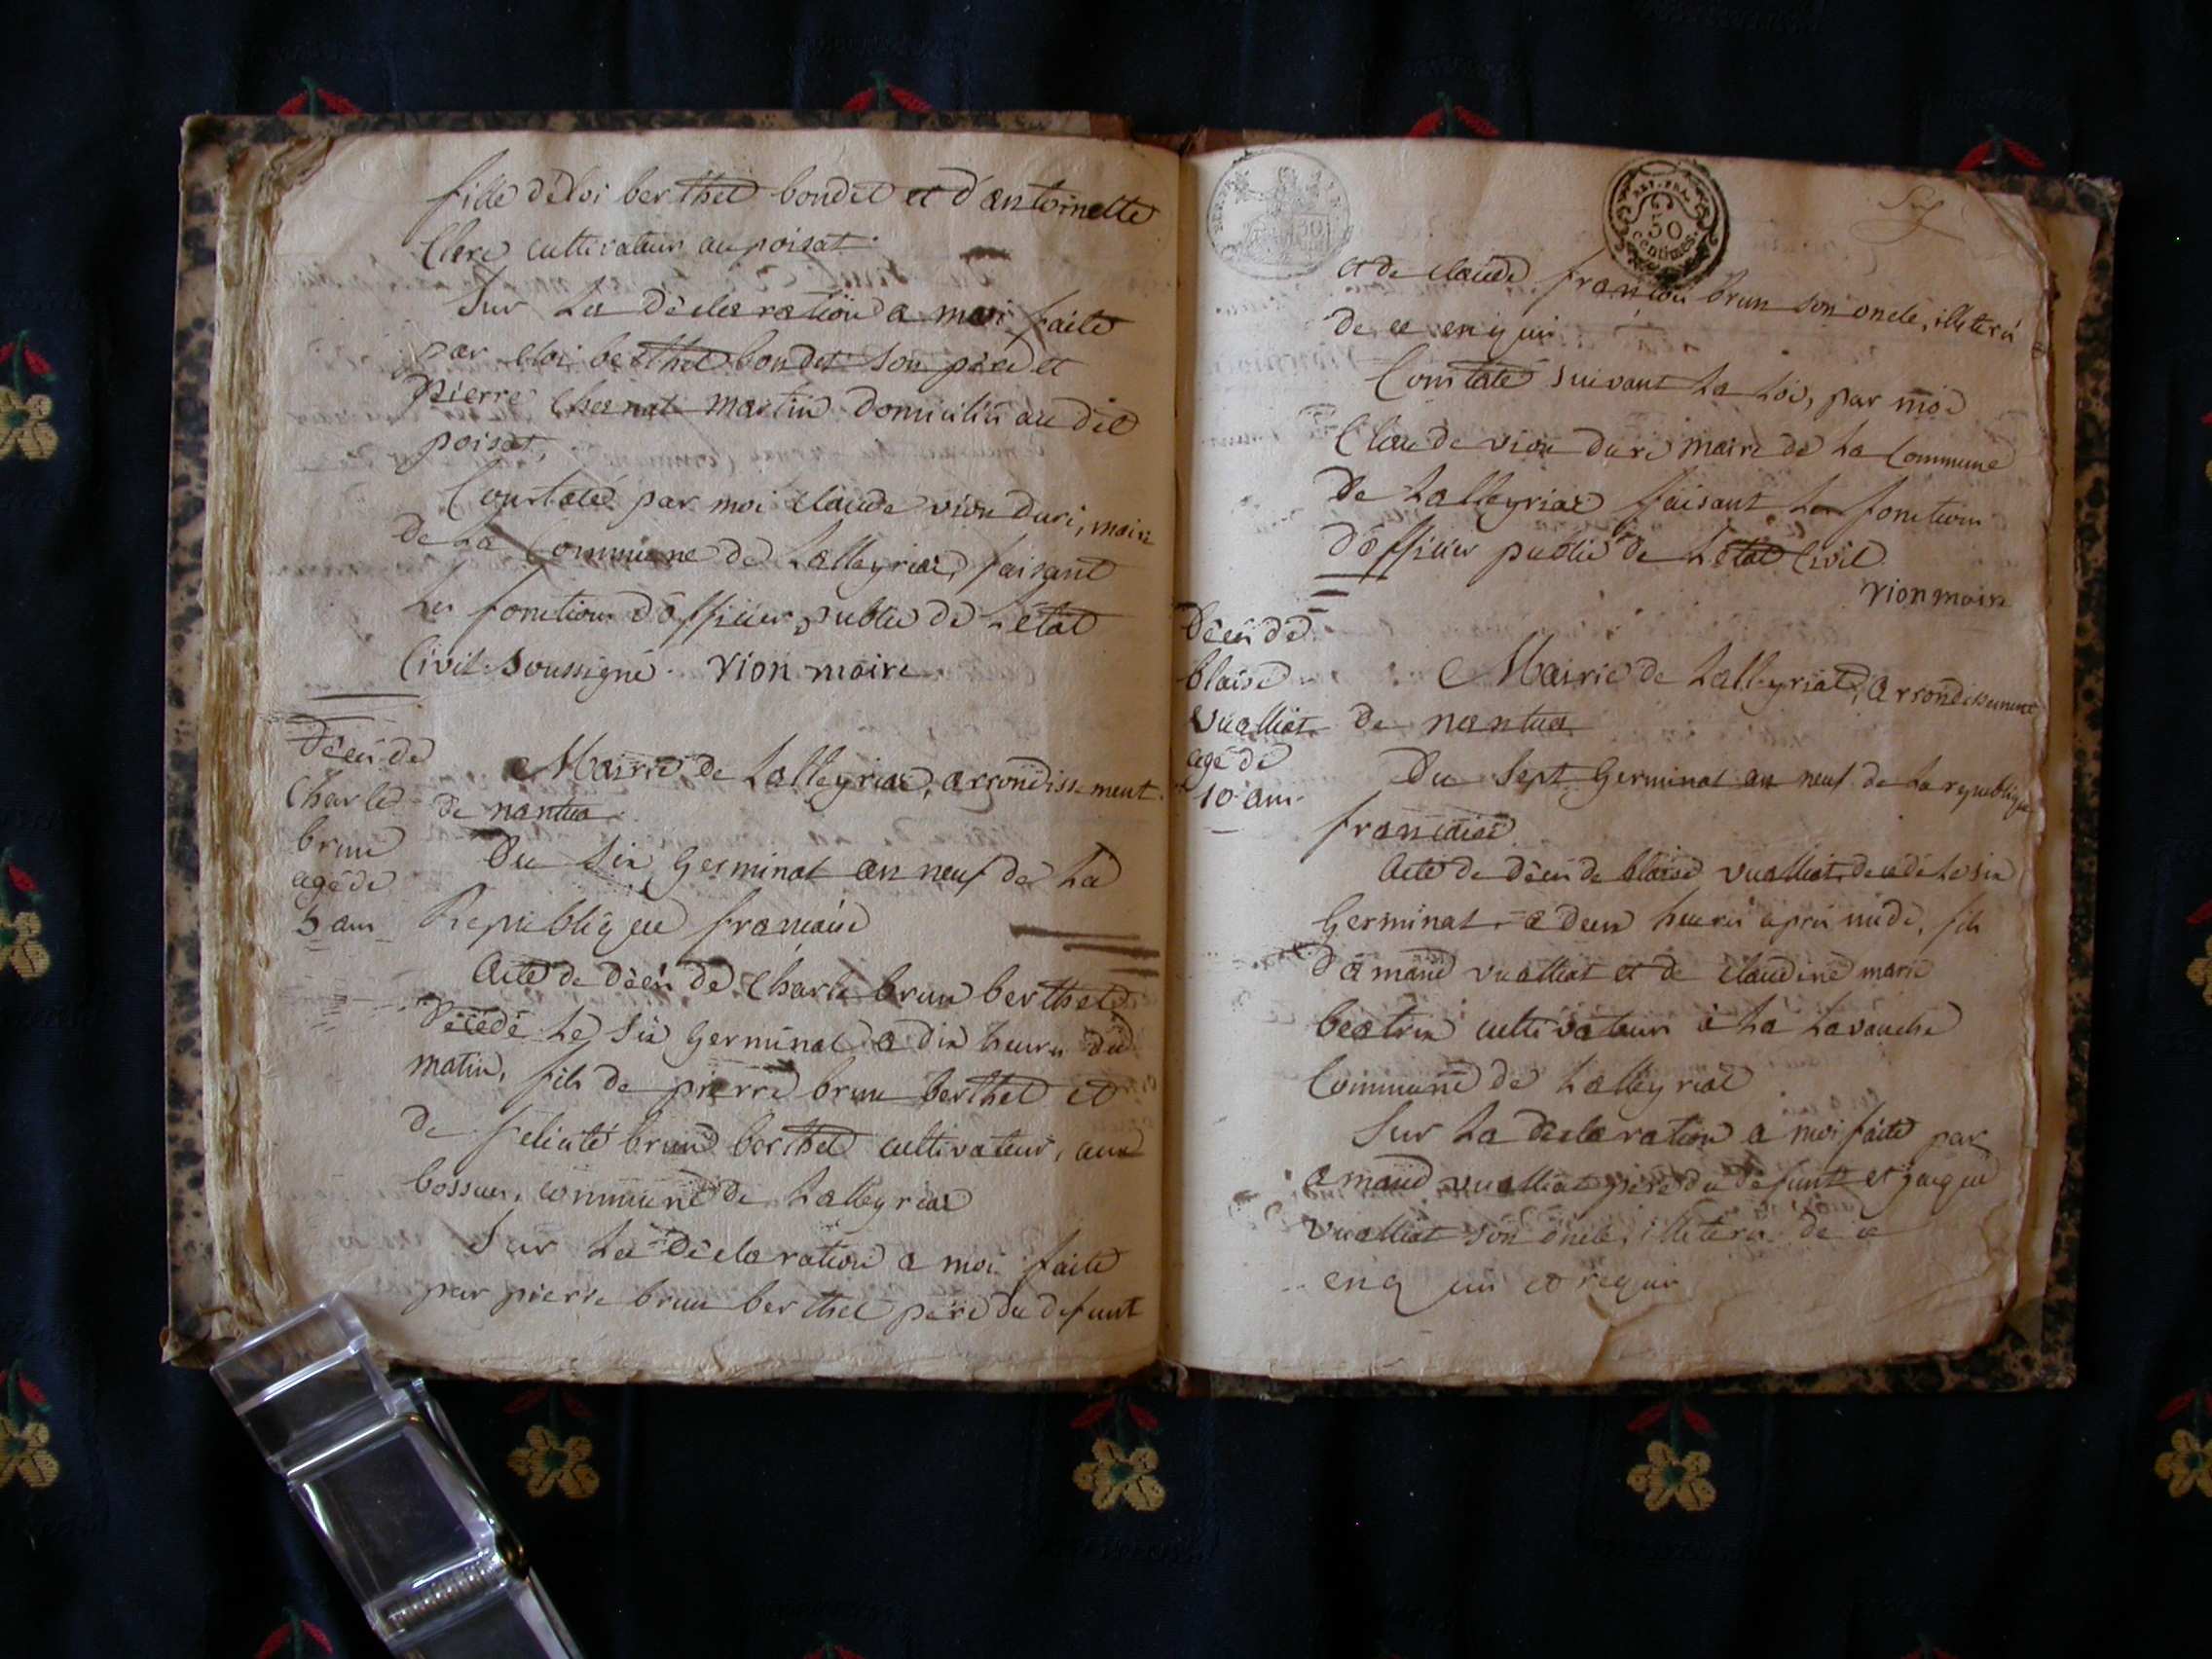 fille d'éloi berthet bondet et d'antoinette
Clerc cultivateur au poisat
Sur La déclaration a moi faite
par eloi berthet bondet son père et
pierre Chernat martin domiciliés au dit
poisat,
Constaté par moi claude vion duri, maire
de La Commune de Lalleyriat, faisant
Les fonctions d'officier public de L'état
Civil soussigné. Vion maire
Décès de
Charles
brun
agé de
5 ans
Mairie de Lalleyriat, arrondissement
de nantua
Du six Germinal an neuf de La
Republique francaise
Acte de décès de Charle brun berthet
décédé Le six Germinal a dix heures du
matin, fils de pierre brun berthet et
de felicité brun berthet cultivateur, aux
bossus, commune de Lalleyriat
Sur La déclaration a moi faite
par pierre brun berthet père du defunt
REP. FRA.
50
centimes.
et de claude françois brun son oncle, illeterés
de ce enquis
Constaté suivant La Loi, par moi
Claude vion duri maire de La Commune
de Lalleyriat faisant Les fonctions
d'officier public de L'état Civil
Vion maire
Décès de
blaise
vualliat
agé de
10 ans
Mairie de Lalleyriat, arrondissement
de nantua
Du sept Germinal an neuf de La republique
francaise
Acte de décès de blaise vualliat, decedé Le six
Germinal a deux heures après midi, fils
d'amand vualliat et de claudine marie
beatrix cultivateurs à La Lavanche
Commune de Lalleyriat
Sur La déclaration a moi faite par
amand vualliat père du defunt et jacque
vualliat son oncle, illeterés de ce
enquis et requis